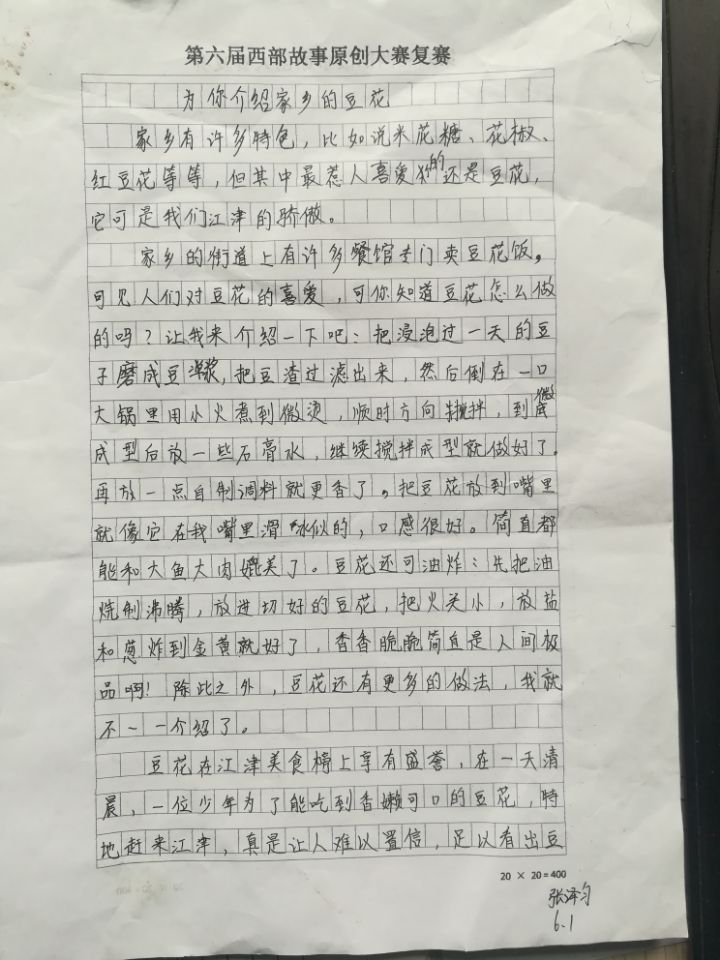 第六届西部故事原创大赛复赛
为你介绍家乡的豆花
家乡有许多特色，比如说米花糖、花椒、
红豆花等等，但其中最惹人喜爱的还是豆花，
它可是我们江津的骄傲。
家乡的街道上有许多餐馆专门卖豆花饭。
可见人们对豆花的喜爱，可你知道豆花怎么做
的吗？让我来介绍一下吧：把浸泡过一天的豆
子磨成豆浆，把豆渣过滤出来，然后倒在一口
大锅里用小火煮到微烫，顺时方向搅拌，到微
成型后放一些石膏水，继续搅拌成型就做好了。
再放一点自制调料就更香了。把豆花放到嘴里
就像它在我嘴里滑冰似的，口感很好。简直都
能和大鱼大肉媲美了。豆花还可油炸：先把油
烧制沸腾，放进切好的豆花，把火关小，放盐
和葱炸到金黄就好了，香香脆脆简直是人间极
品啊！除此之外，豆花还有更多的做法，我就
不一一介绍了。
豆花在江津美食榜上享有盛誉，在一天清
晨，一位少年为了能吃到香嫩可口的豆花，特
地赶来江津，真是让人难以置信，足以看出豆
20 × 20=400
张泽
6.1